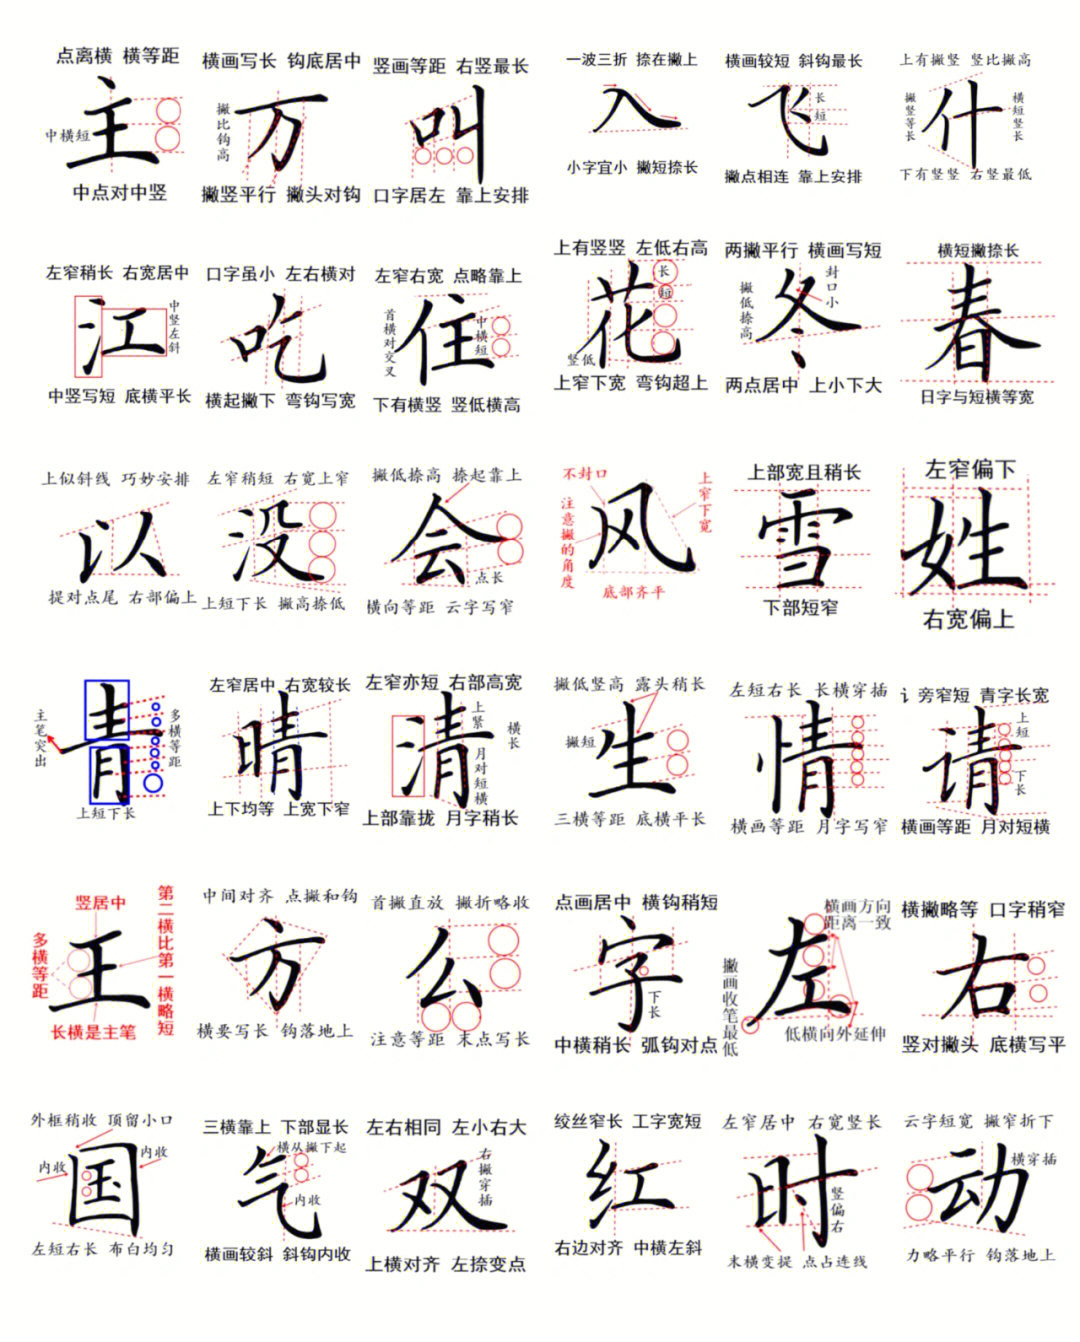 点离横 横等距
主
中横短
中点对中竖
横画写长 钩底居中
万
撇比钩高
撇竖平行 撇头对钩
竖画等距 右竖最长
叫
口字居左 靠上安排
一波三折 捺在撇上
入
小字宜小 撇短捺长
横画较短 斜钩最长
飞
长
短
撇点相连 靠上安排
上有撇竖 竖比撇高
什
撇竖等长
横短竖长
下有竖竖 右竖最低
左窄稍长 右宽居中
江
中竖左斜
中竖写短 底横平长
口字虽小 左右横对
吃
横起撇下 弯钩写宽
左窄右宽 点略靠上
住
首横对交叉
中横短
下有横竖 竖低横高
上有竖竖 左低右高
花
长
短
竖低
上窄下宽 弯钩超上
两撇平行 横画写短
冬
撇低捺高
封口小
两点居中 上小下大
横短撇捺长
春
日字与短横等宽
上似斜线 巧妙安排
以
提对点尾 右部偏上
左窄稍短 右宽上窄
没
上短下长 撇高捺低
撇低捺高 捺起靠上
会
点长
横向等距 云字写窄
不封口
风
注意撇的角度
上窄下宽
底部齐平
上部宽且稍长
雪
下部短窄
左窄偏下
姓
右宽偏上
青
主笔突出
多横等距
上短下长
左窄居中 右宽较长
晴
上下均等 上宽下窄
左窄亦短 右部高宽
清
上紧
横长
月对短横
上部靠拢 月字稍长
撇低竖高 露头稍长
生
撇短
三横等距 底横平长
左短右长 长横穿插
情
横画等距 月字写窄
讠旁窄短 青字长宽
请
上短
下长
横画等距 月对短横
竖居中
王
多横等距
第二横比第一横略短
长横是主笔
中间对齐 点撇和钩
方
横要写长 钩落地上
首撇直放 撇折略收
么
注意等距 末点写长
点画居中 横钩稍短
字
下长
中横稍长 弧钩对点
横画方向
距离一致
左
撇画收笔最低
低横向外延伸
横撇略等 口字稍窄
右
竖对撇头 底横写平
外框稍收 顶留小口
国
内收
内收
左短右长 布白均匀
三横靠上 下部显长
横从撇下起
气
内收
横画较斜 斜钩内收
左右相同 左小右大
双
右撇穿插
上横对齐 左捺变点
绞丝窄长 工字宽短
红
右边对齐 中横左斜
左窄居中 右宽竖长
时
竖偏右
末横变提 点占连线
云字短宽 撇窄折下
动
横穿插
力略平行 钩落地上